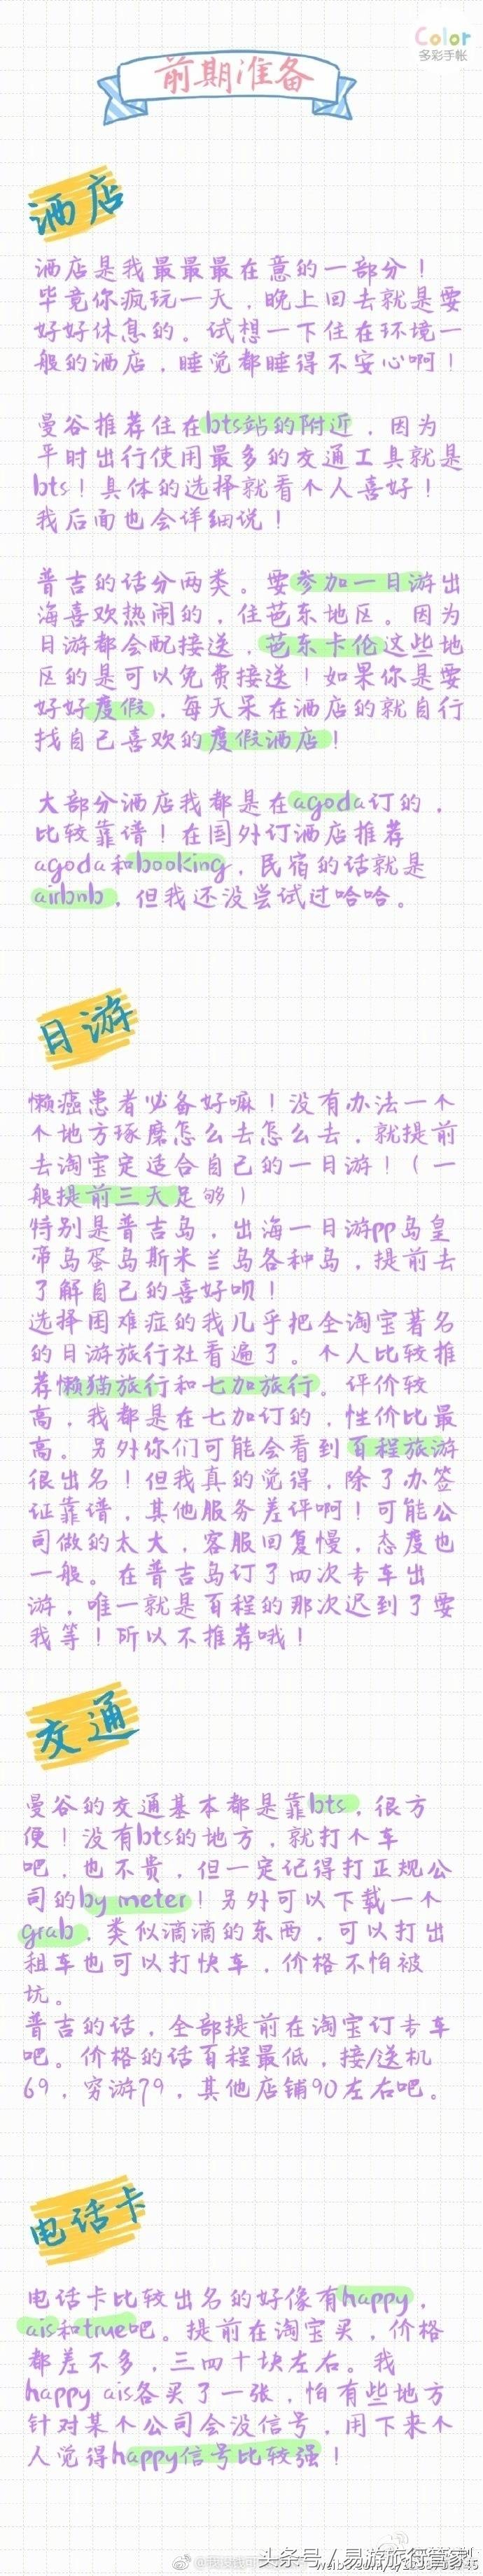 Color
多彩手帐
前期准备
酒店
酒店是我最最最在意的一部分！
毕竟你疯玩一天，晚上回去就是要
好好休息的。试想一下住在环境一
般的酒店，睡觉都睡得不安心啊！
曼谷推荐住在bts站的附近，因为
平时出行使用最多的交通工具就是
bts！具体的选择就看个人喜好！
我后面也会详细说！
普吉的话分两类。要参加一日游出
海喜欢热闹的，住芭东地区。因为
日游都会配接送，芭东卡伦这些地
区的是可以免费接送！如果你是要
好好度假，每天呆在酒店的就自行
找自己喜欢的度假酒店！
大部分酒店我都是在agoda订的，
比较靠谱！在国外订酒店推荐
agoda和booking，民宿的话就是
airbnb，但我还没尝试过哈哈。
日游
懒癌患者必备好嘛！没有办法一个
个地方琢磨怎么去怎么去，就提前
去淘宝定适合自己的一日游！（一
般提前三天足够）
特别是普吉岛，出海一日游pp岛皇
帝岛蛋岛斯米兰岛各种岛，提前去
了解自己的喜好呗！
选择困难症的我几乎把全淘宝著名
的日游旅行社看遍了。个人比较推
荐懒猫旅行和七加旅行。评价较
高，我都是在七加订的，性价比最
高。另外你们可能会看到百程旅游
很出名！但我真的觉得，除了办签
证靠谱，其他服务差评啊！可能公
司做的太大，客服回复慢，态度也
一般。在普吉岛订了四次专车出
游，唯一就是百程的那次迟到了要
我等！所以不推荐哦！
交通
曼谷的交通基本都是靠bts，很方
便！没有bts的地方，就打个车
吧，也不贵，但一定记得打正规公
司的by meter！另外可以下载一个
grab，类似滴滴的东西，可以打出
租车也可以打快车，价格不怕被
坑。
普吉的话，全部提前在淘宝订专车
吧。价格的话百程最低，接/送机
69，穷游79，其他店铺90左右吧。
电话卡
电话卡比较出名的好像有happy，
ais和true吧。提前在淘宝买，价格
都差不多，三四十块左右。我
happy ais各买了一张，怕有些地方
针对某个公司会没信号，用下来个
人觉得happy信号比较强！
头条号／易游旅行管家